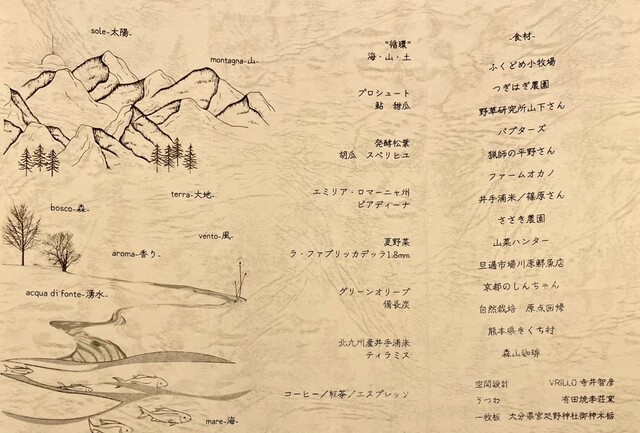 sole-太陽-
montagna-山-
terra-大地-
bosco-森-
vento-風-
aroma-香り-
acqua di fonte-湧水-
mare-海-
"循環"
海・山・土
プロシュート
鮎 甜瓜
発酵松葉
胡瓜 スベリヒユ
エミリア・ロマーニャ州
ピアディーナ
夏野菜
ラ・ファブリッカデッラ1.8mm
グリーンオリーブ
備長炭
北九州産井手浦米
ティラミス
コーヒー/紅茶/エスプレッソ
-食材-
ふくどめ小牧場
つぎはぎ農園
野草研究所山下さん
バブターズ
猟師の平野さん
ファームオカノ
井手浦米/篠原さん
ささき農園
山菜ハンター
旦過市場川原鮮魚店
京都のしんちゃん
自然栽培 原点回帰
熊本県きくち村
森山珈琲
空間設計 VRILLO 寺井智彦
うつわ 有田焼李荘窯
一枚板 大分県宮処野神社御神木栃